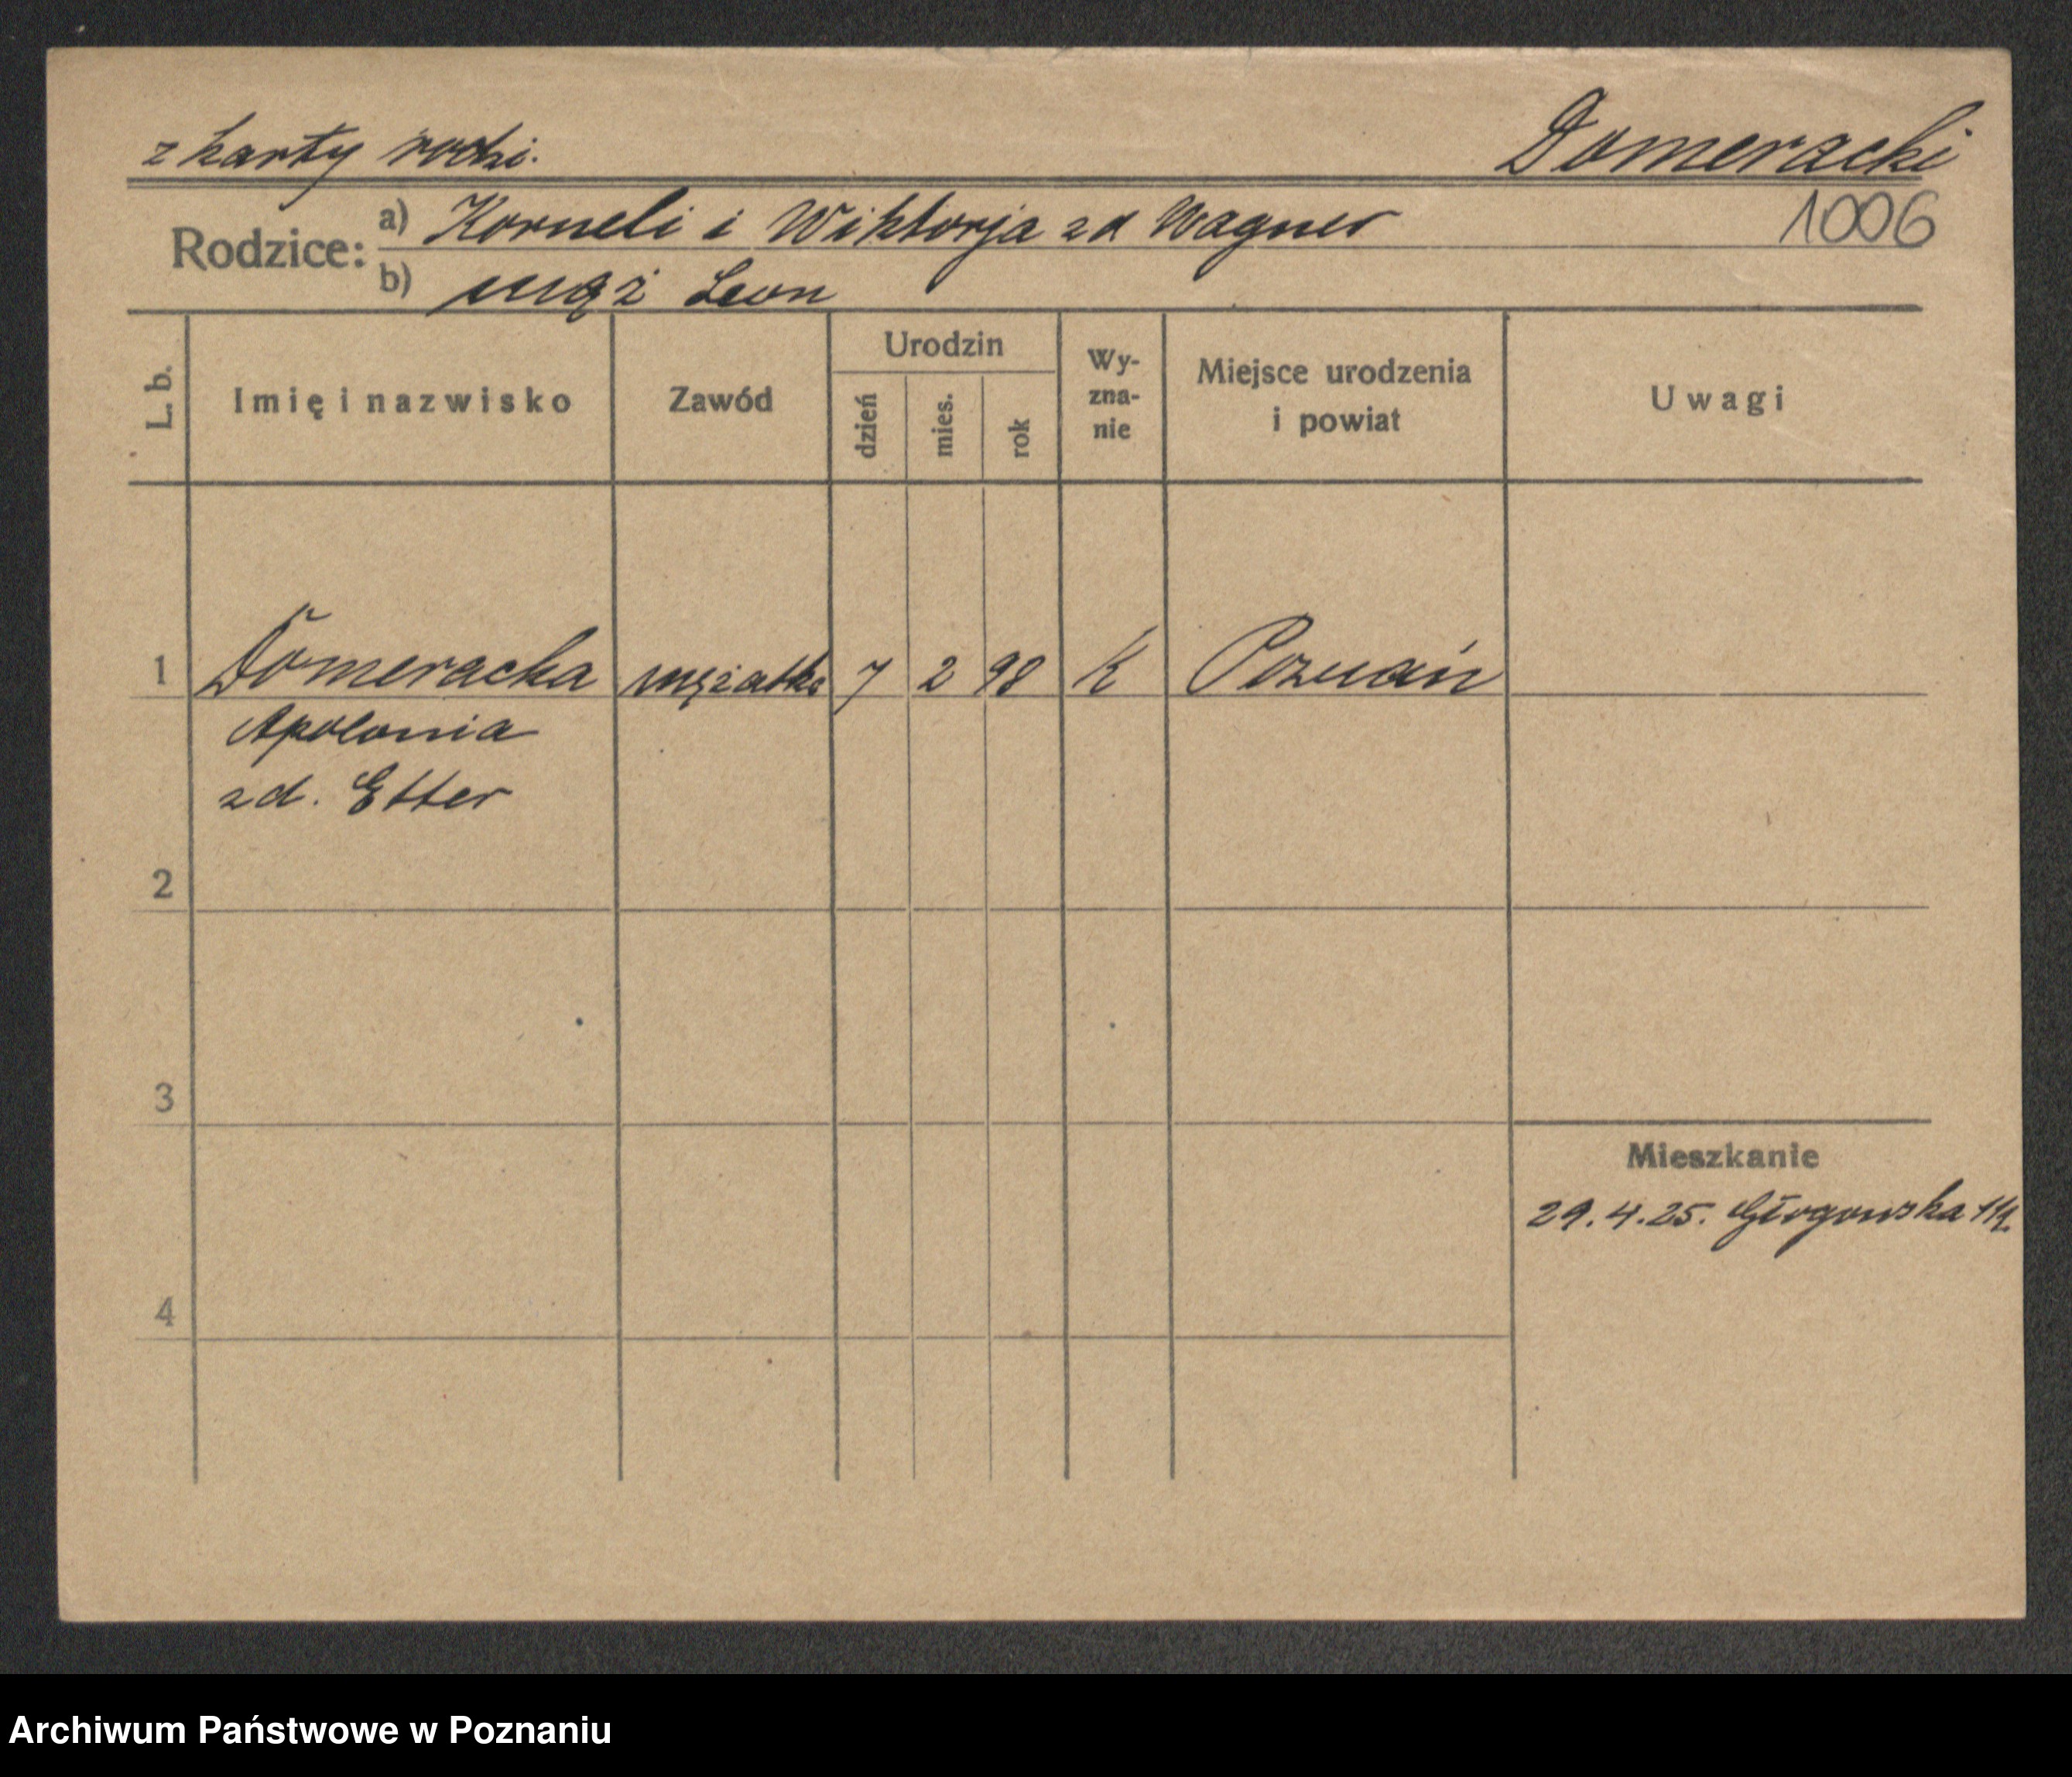 z karty rodzi. Domeracki
Rodzice: a) Korneli i Wiktorja zd Wagner 1006
b) mąż Leon
L. b. Imię i nazwisko Zawód Urodzin dzień mies. rok Wy-zna-nie Miejsce urodzenia i powiat Uwagi
1 Domeracka mężatka 7 2 98 K Poznań
Apolonia
zd. Etter
2
3
Mieszkanie
29.4.25. Głogowska
4
Archiwum Państwowe w Poznaniu